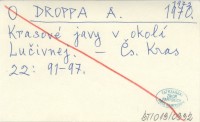 O DROPPA A. 1970.
Krasové javy v okolí
Lučivnej. — Čs. Kras
22: 91-97.